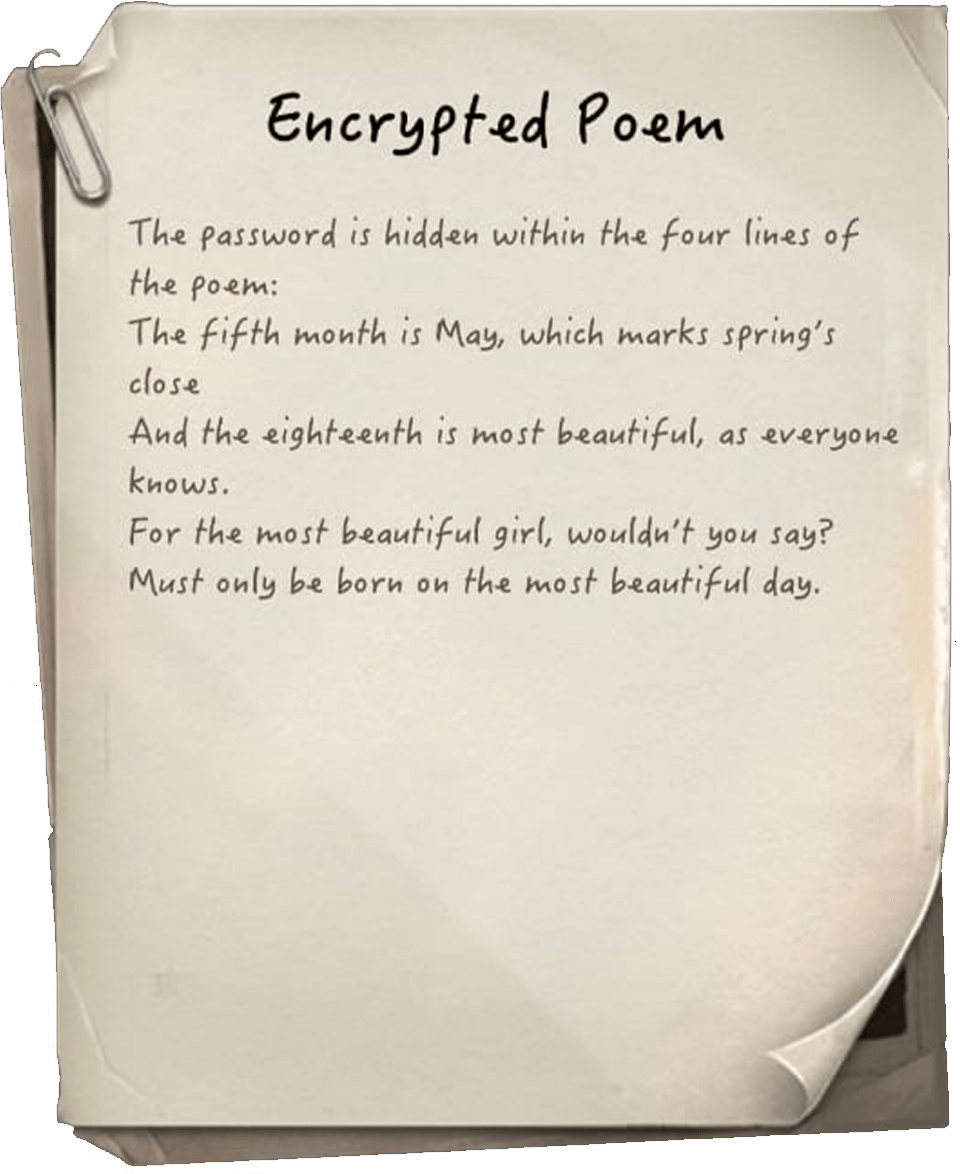 Encrypted Poem
The password is hidden within the four lines of
the poem:
The fifth month is May, which marks spring's
close
And the eighteenth is most beautiful, as everyone
knows.
For the most beautiful girl, wouldn't you say?
Must only be born on the most beautiful day.